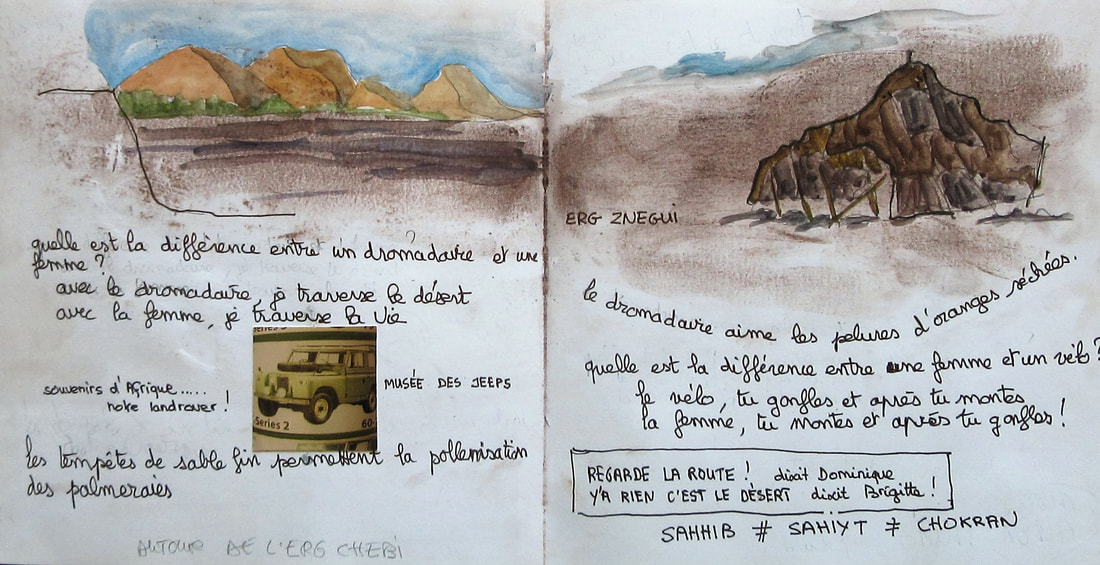 quelle est la différence entre un dromadaire et une
femme ?
avec le dromadaire, je traverse le désert
avec la femme, je traverse la vie
souvenirs d'Afrique.....
notre landrover !
Series 2
60-
MUSÉE DES JEEPS
les tempêtes de sable fin permettent la pollemisation
des palmeraies
AUTOUR DE L'ERG CHEBI
ERG ZNEGUI
le dromadaire aime les pelures d'oranges séchées.
quelle est la différence entre une femme et un vélo ?
le vélo, tu gonfles et après tu montes
la femme, tu montes et après tu gonfles !
REGARDE LA ROUTE ! dixit Dominique
Y'A RIEN C'EST LE DÉSERT dixit Brigitte !
SAHHIB # SAHIYT ≠ CHOKRAN